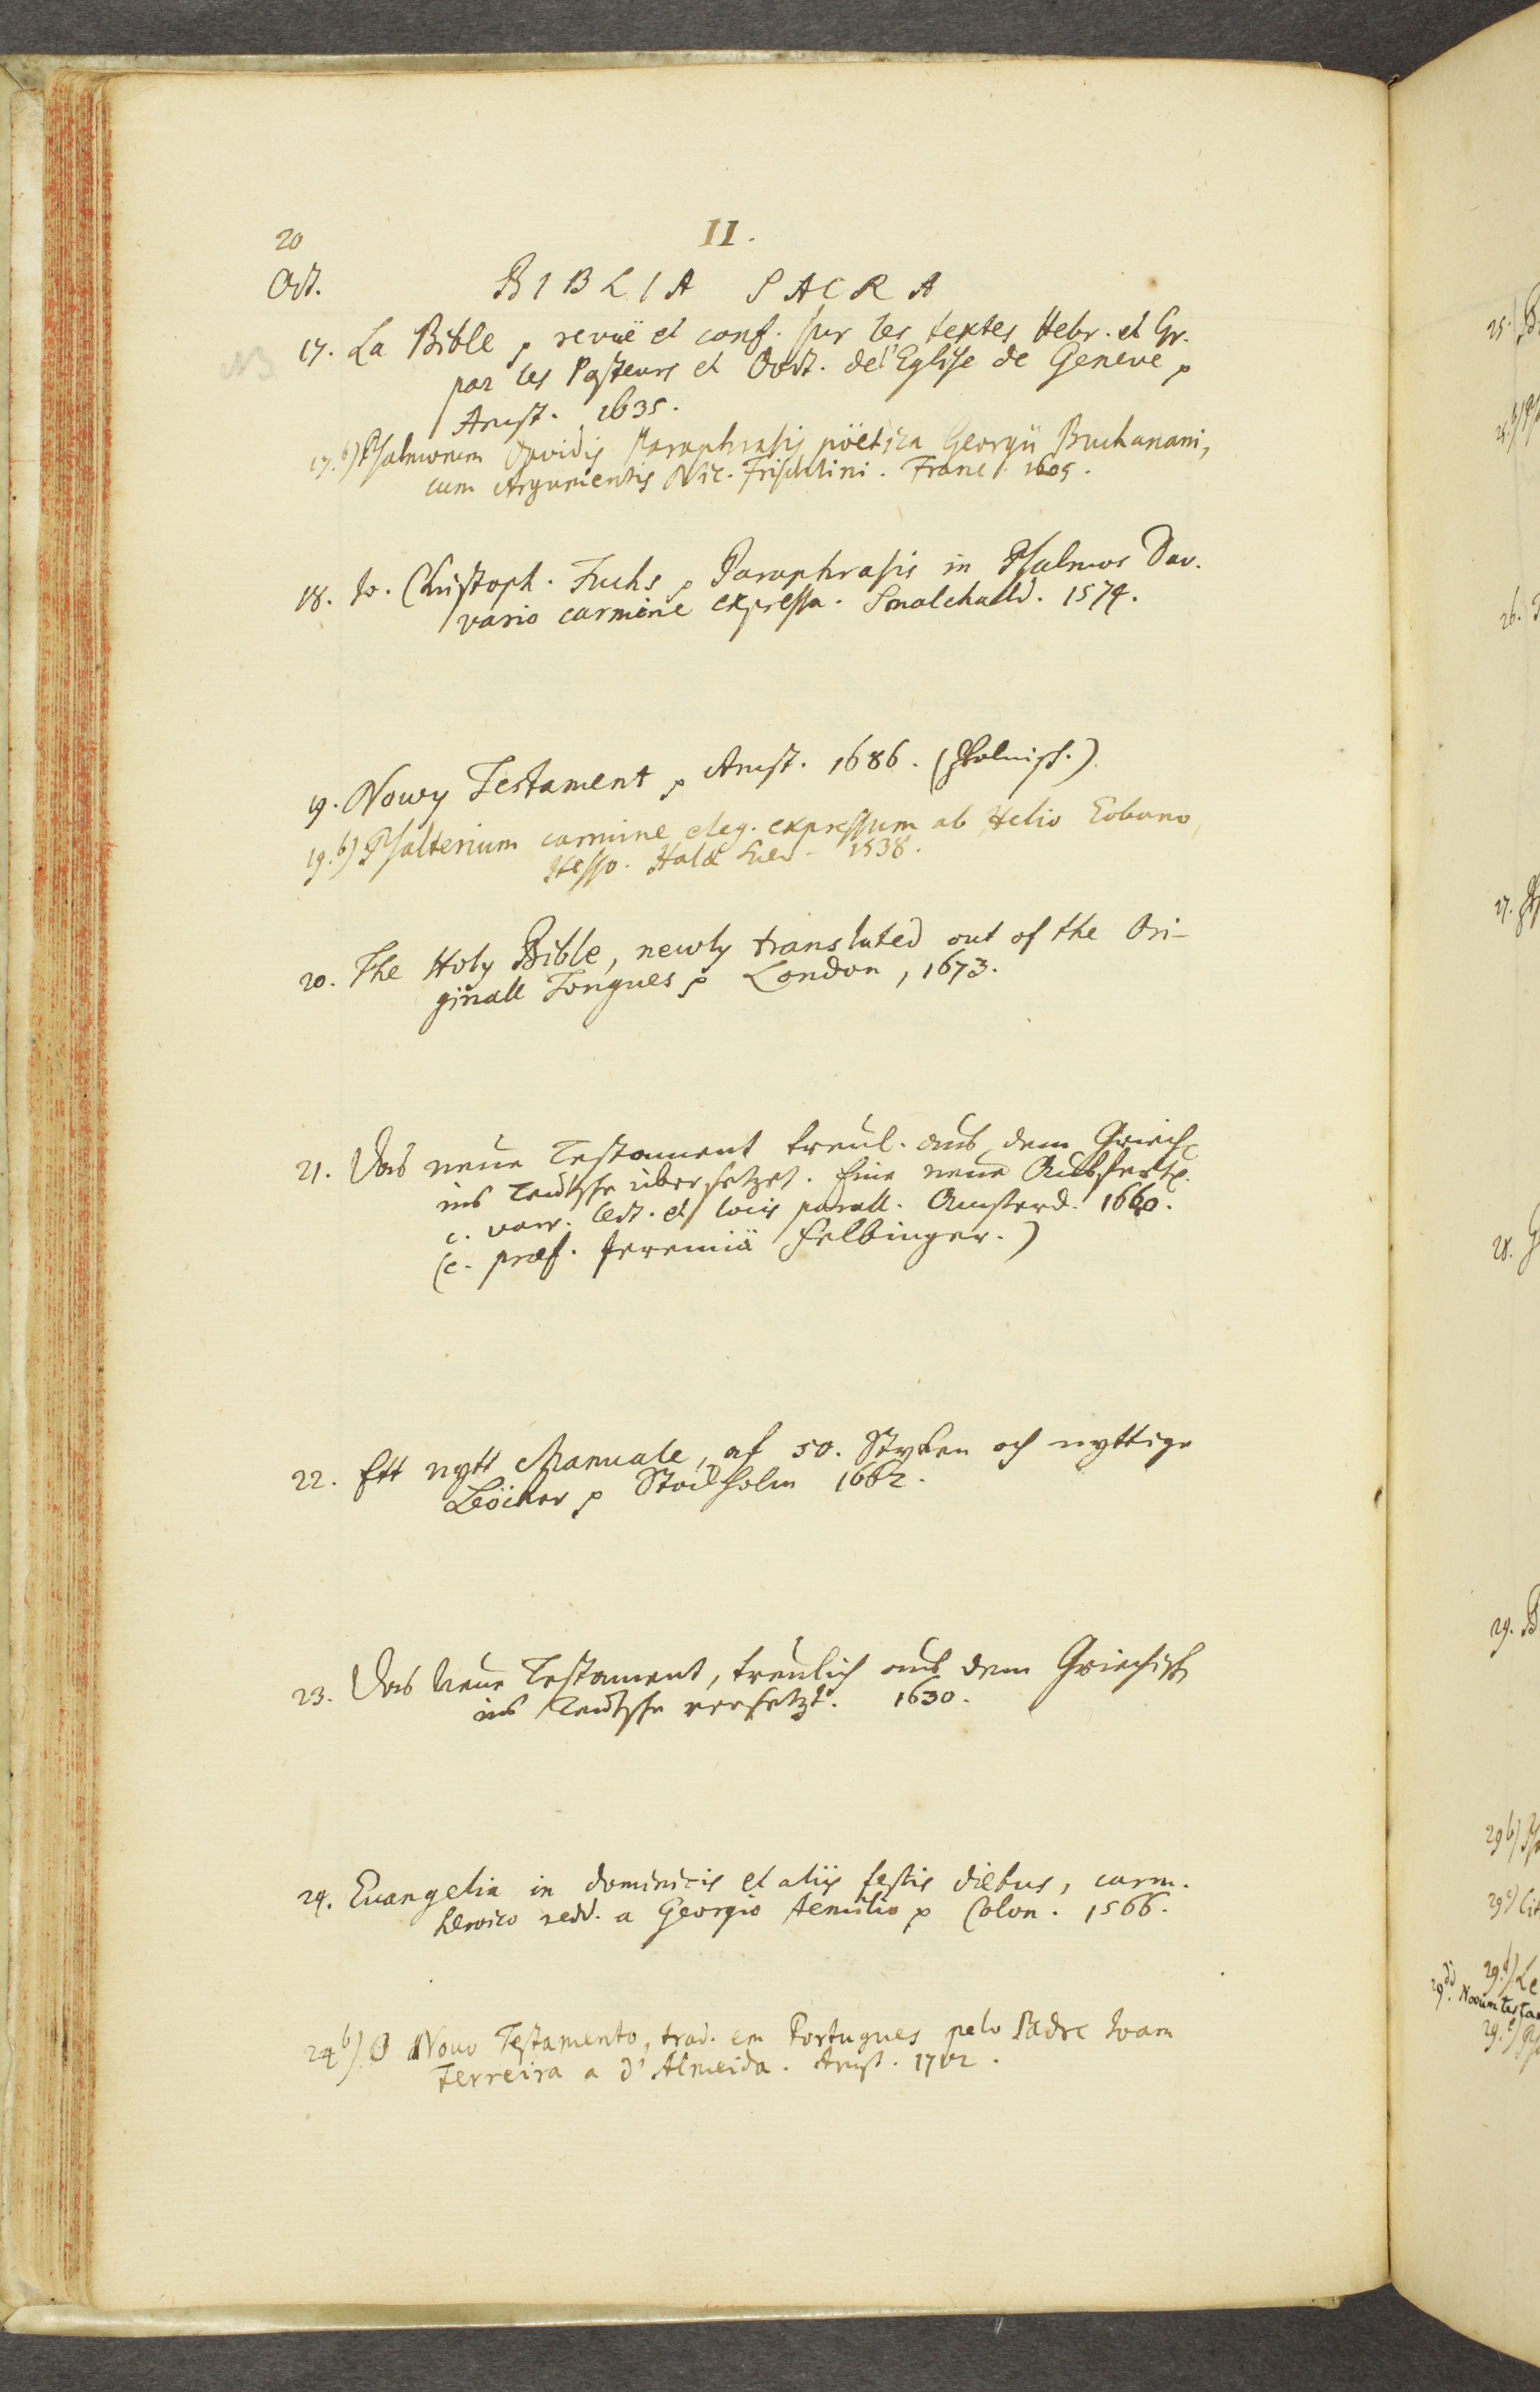 20
II.
Oct.
BIBLIA SACRA
NB
17. La Bible p revuë et conf. sur les textes Hebr. et Gr.
par les Pasteurs et Doct. de l'Eglise de Geneve p
Amst. 1635.
17.b) Psalmorum Davidis Paraphrasis pöetica Georgii Buchanani,
cum Argumentis Nic. Frischlini. Franc. 1605.
18. Jo. Christoph. Fuchs p Paraphrasis in Psalmos Dav.
vario carmine expressa. Smalchald. 1574.
19. Nowy Testament p Amst. 1686. (Polnisch.)
19.b) Psalterium carmine eleg. expressum ab Helio Eobano
Hesso. Halæ Suev. 1538.
20. The Holy Bible, newly translated out of the Ori-
ginall Tongues p London, 1673.
21. Das neue Testament treul. aus dem Griech.
ins Teutsche übersetzet. Eine neue Aussfert.
c. varr. lect. et locis parall. Amsterd. 1660.
(c. præf. Jeremiä Felbinger.)
22. Ett nytt Manuale, af 50. Styken och nyttige
Böcker p Stockholm 1662.
23. Das Neue Testament, treulich aus dem Griechisch
ins Teutsche versetzt. 1630.
24. Euangelia in dominicis et aliis festis diebus, carm.
heroico redd. a Georgio Aemilio p Colon. 1566.
24b) O Novo Testamento, trad. em Portugues pelo Padre Joam
Ferreira a d'Almeida. Amst. 1712.
25.
25.b)
26.
27.
28.
29. B
29b)
29c) Cit
29.d) Le
29.dd Novum testa
29.e)